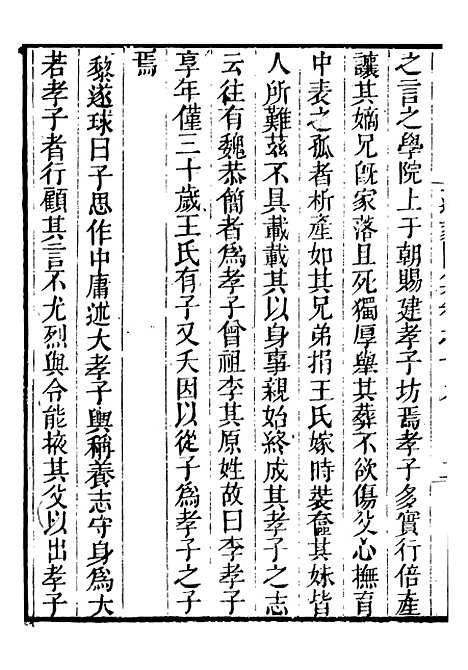 之言之學院上于朝賜建孝子坊焉孝子多實行倍產
讓其嫡兄旣家落且死獨厚舉其葬不欲傷父心撫育
中表之孤者析產如其兄弟捐王氏嫁時裝奩其妹皆
人所難茲不具載載其以身事親始終成其孝子之志
云往有魏恭簡者爲孝子曾祖李其原姓故曰李孝子
享年僅三十歲王氏有子又夭因以從子爲孝子之子
焉
黎遂球曰子思作中庸述大孝子輿稱養志守身爲大
若孝子者行顧其言不尤烈與令能掖其父以出孝子